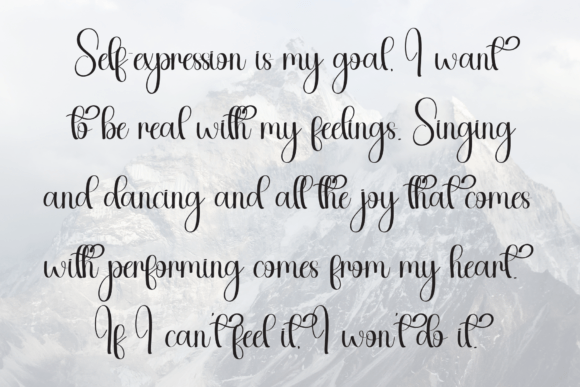 Self-expression is my goal. I want
to be real with my feelings. Singing
and dancing and all the joy that comes
with performing comes from my heart.
If I can't feel it, I won't do it.